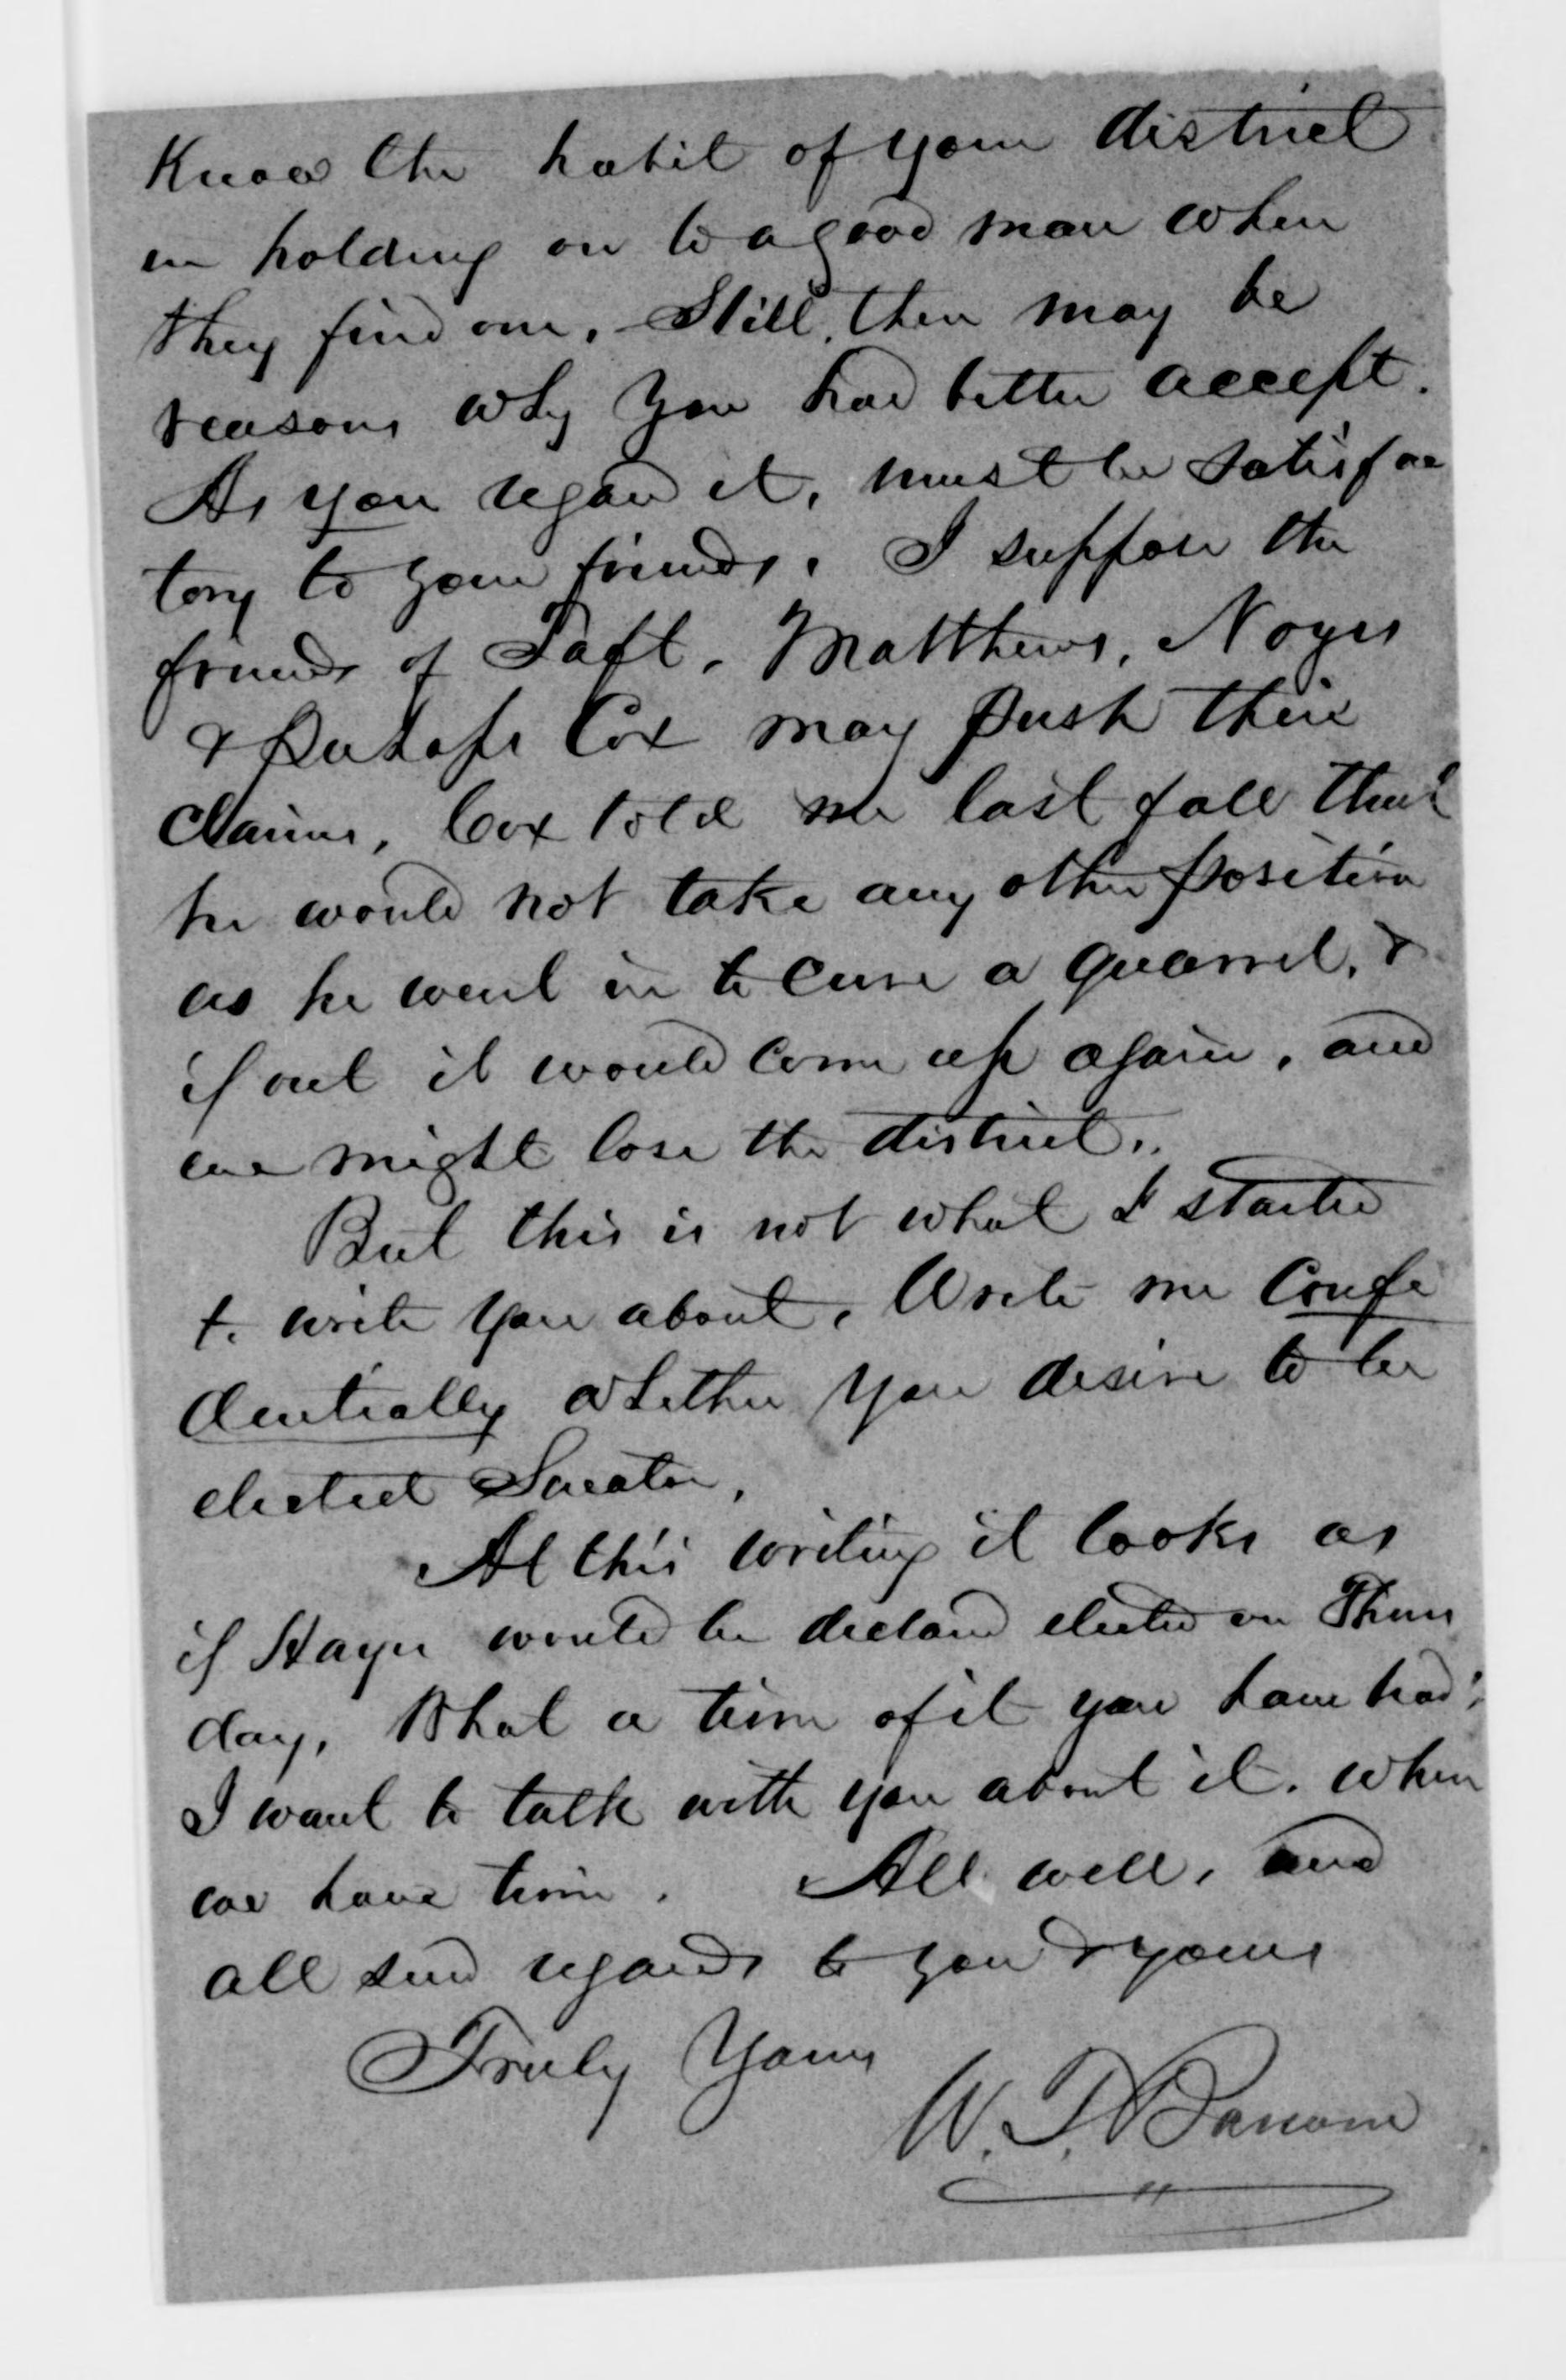 Know the habit of your district
in holding on to a good man when
they find one. Still, there may be
reasons why you had better accept.
As you regard it, must be satisfac
tory to your friends. I suppose the
friends of Taft, Matthews, Noyes
& Perhaps Cox may push their
claims, Cox told me last fall that
he would not take any other position
as he went in to cure a quarrel, &
if out it would come up again, and
we might lose the district.
But this is not what I started
to write you about, Write me Confi
dentially whether you desire to be
elected Senator,
At this writing it looks as
if Hayes would be declared elected on Thurs
day, What a time of it you have had;
I want to talk with you about it. when
we have time. All well, and
all send regards to you & yours
Truly Yours
W. T. Bascom